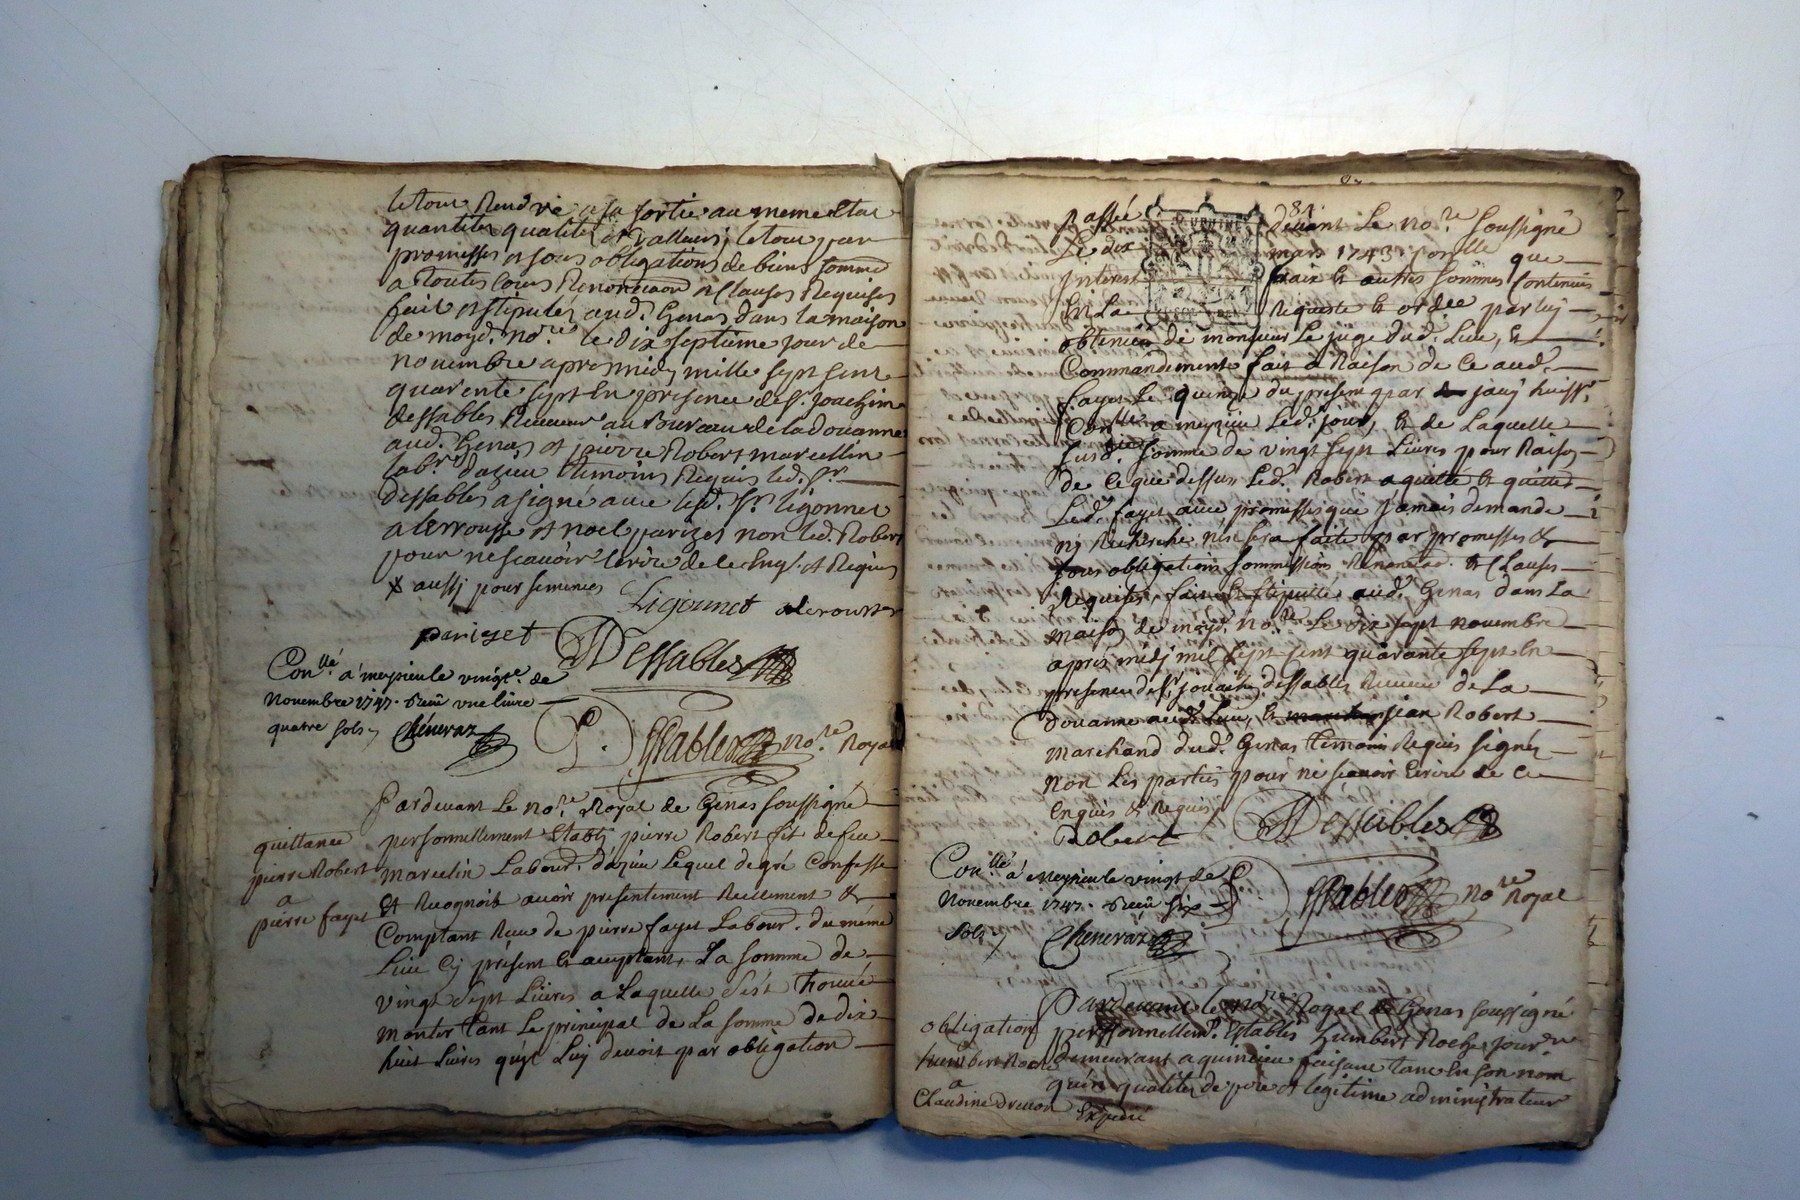 le tout rendre a sa sortie au meme etat
quantites qualites et valleurs, le tout par
promesses et sous obligations de biens somm
a toutes cours Renonciaon et Clauses Requises
fait et stipulés aud. Genas dans la maison
de moyd. no.re le dix septieme jour de
novembre apres midy mille sept cent
quarente sept en presence de s.r Joachim
dessables Receveur au Bureau de la douanne
aud. Genas et pierre Robert marcellin
lab.r d'azieu temoins Requis led. s.r
dessables a signé avec led. s.r ligonnet
a lerrousse et noel parizet non led. Robert
pour ne scavoir ecrire de ce enq. et Requis
x aussy pour semences
Ligonnet
parizet Dessables
Con.llé a meyzieu le vingt. de
Novembre 1747. Receu une livre
quatre sols Cheneraz
Dessables no.re Royal
Pardevant Le no.re Royal de Genas soussigné
quittance
pierre Robert
a
pierre fayet
personnellement Etably pierre Robert fit de feu
marcelin Labour. d'azieu Lequel de gré Confesse
Et Recognoit avoir presentement Reelement &
Comptant Reçu de pierre fayet Labour. du même
Lieu cy présent & acceptant, La somme de
vingt sept Livres a Laquelle s'est trouvé
monter tant Le principal de La somme de dix
huit Livres qu'il Luy devoit par obligation
81.
Passée devant Le no.re soussigné
Le dix mars 1743. pour les que
Interest fraix & autres sommes Contenues
En La Requeste & ord.ce par luy
obtenue de monsieur Le juge dud. Lieu, &
Commandement fait a Raison de Ce aud.
fayet Le quinze du present par jauj huiss.r
Con.llé a meyzieu Led. jour, & de Laquelle
susd. somme de vingt sept Livres pour Raison
de Ce que dessus Led. Robert a quitté & quitte
Led. fayet avec promesses que jamais demande
ny Recherche n'en sera faite par promesses &
sous obligations sommissions Renonciaon & Clauses
Requises, fait & stipullé aud. Genas dans La
maison de moyd. no.re Le dix sept novembre
après midy mil sept cent quarante sept En
presence de s.r joachim dessables Receveur de La
douanne aud. Lieu, & jean Robert
marchand dud. Genas temoins Requis signés
non Les parties pour ne scavoir Ecrire de Ce
Enquis & Requis
Robert Dessables
Con.llé a Meyzieu le vingt de
Novembre 1747. Receu six
sols Cheneraz
Dessables no.re Royal
Pardevant le no.re Royal de Genas soussigné
obligation
humbert Roche
a
Claudine drevon
personnellem.t Etablis humbert Roche jour.r
demeurant a quincieu faisant tant En son nom
qu'en qualites de pere et legitime administrateur
Expedié